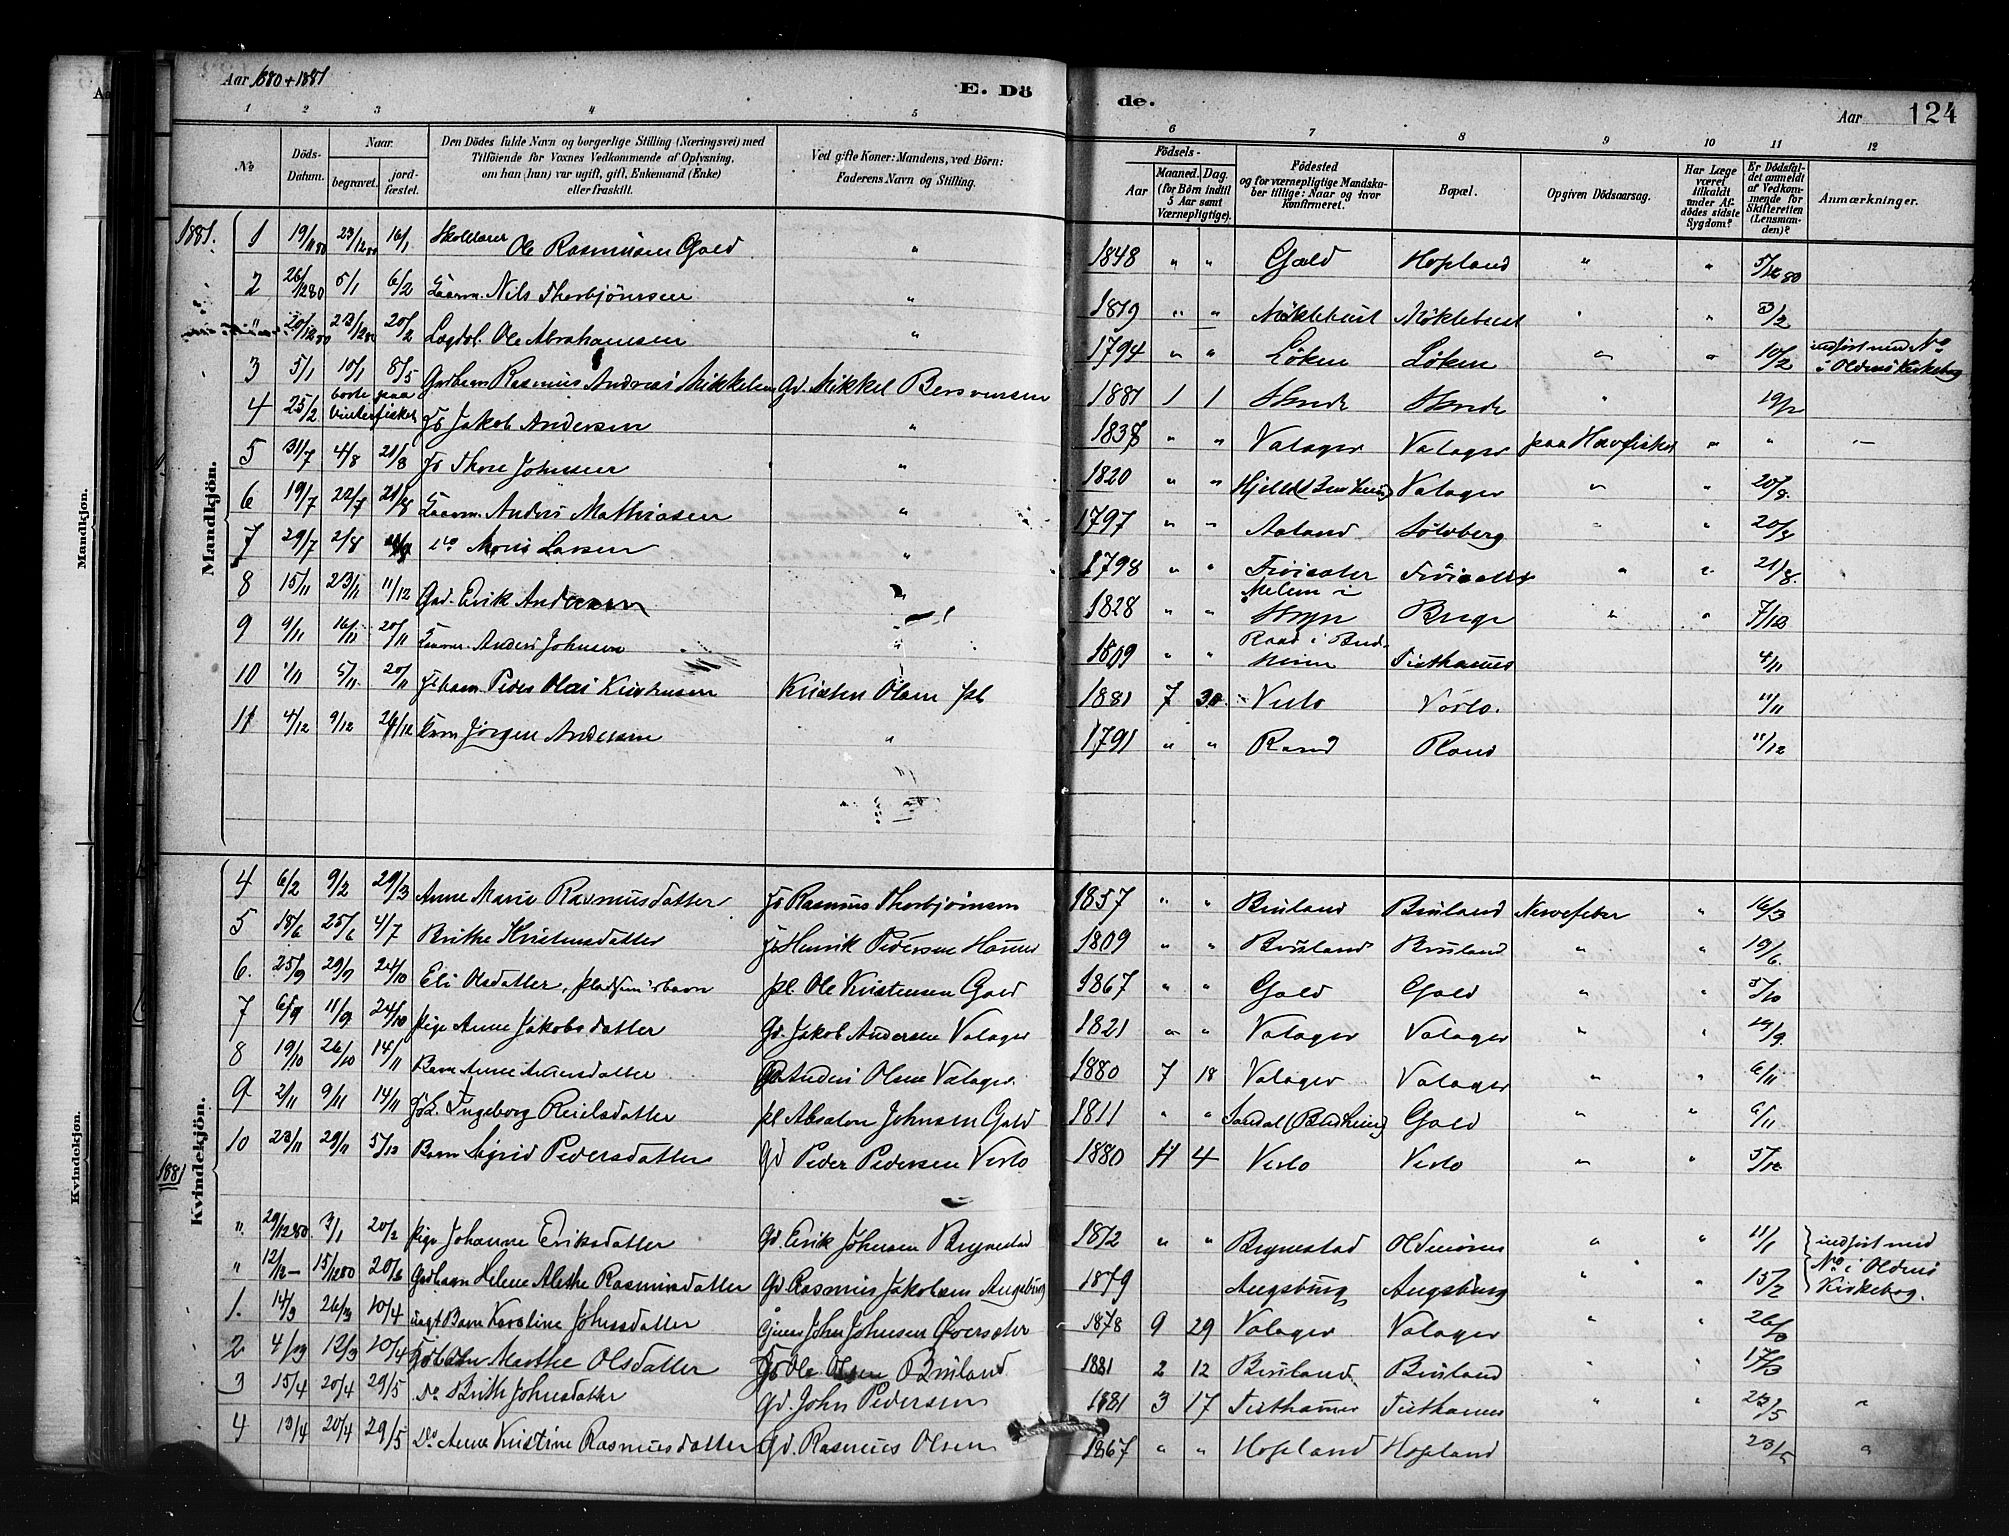 Aar 1880 + 1881
E. Dö
de.
Aar
124
1 2 3 4 5 6 7 8 9 10 11 12
No
Döds-Datum.
Naar.
begravet.
jord-fæstet.
Den Dödes fulde Navn og borgerlige Stilling (Næringsvei) med
Tilföiende for Voxnes Vedkommende af Oplysning,
om han (hun) var ugift, gift, Enkemand (Enke)
eller fraskilt.
Ved gifte Koner: Mandens, ved Börn:
Faderens Navn og Stilling.
Födsels-
Aar
Maaned. Dag.
(for Börn indtil
5 Aar samt
Værnepligtige).
Födested
og for værnepligtige Mandska-
ber tillige: Naar og hvor
konfirmeret.
Bopæl.
Opgiven Dödsaarsag.
Har Læge
været
tilkaldt
under Af-
dödes sidste
Sygdom?
Er Dödsfal-
det anmeldt
af Vedkom-
mende for
Skifteretten
(Lensman-
den)?
Anmærkninger.
Mandkjön.
1881. 1 19/11 80 23/12 80 16/1 Skolelærer Ole Rasmusen Gald " 1848 " " Gald Hopland " " 5/12 80
2 26/12 80 5/1 6/2 Nils Thorbjörnsen " 1819 " " Möklebust Möklebust " " 3/2
" 20/12 80 23/12 80 20/2 Ole Abrahamsen " 1794 " " Löken Löken " " 10/2 indfört med No i Oldens Kirkebog
3 5/1 10/1 8/5 Rasmus Andreas Mikkelsen Gd. Mikkel 1881 1 1 " 19/2
4 25/2 borte paa Vinterfisket Fs Jakob Andersen " 1838 " " Valager Valager paa Havfisket " " –
5 31/7 4/8 21/8 Fs Thore Johnsen " 1820 " " Valager " " 20/8.
6 19/7 22/7 21/8 Anders Mathiasen " 1797 " " Aaland Sölvberg " " 20/8
7 29/7 2/8 Do Mons Larsen " 1798 " " " " 21/8.
8 15/11 23/11 11/12 Gd. Erik Andersen " 1828 " " Melem i Stryn " " 7/12
9 9/11 16/11 20/11 Anders Johnsen " 1809 " " Tisthamer 4/11
10 1/11 5/11 20/11 Peder Olai Kristensen Kristen Olsen pl 1881 7 30 Verlo Verlo. 11/11
11 4/12 9/12 Jörgen Andersen " 1791 " " Rand Rand 11/12
Kvindekjön.
4 6/2 9/2 29/3 Anne Marie Rasmusdatter Fs Rasmus Thorbjörnsen 1857 " " Bruland Bruland Nervefeber " 16/3
5 18/6 25/6 4/7 Brithe Kristensdatter Fs Henrik Pedersen 1809 " " Bruland Bruland " " 19/6.
6. 25/9 29/9 24/10 Eli Olsdatter, pl. Ole Kristensen Gald 1867 " " Gald Gald " " 5/10
7 6/9 11/9 24/10 Pige Anne Jakobsdatter Gd. Jakob Andersen Valager 1821 " " Valager Valager " "
8 19/10 26/10 14/11 Barn Anne Andersdatter Anders Olsen Valager. 1880 7 18 Valager Valager " " 6/11
9 2/11 9/11 14/11 Ingeborg pl Absalon Johnsen Gald 1811 " " Gald " " 6/11
10 23/11 29/11 5/12 Barn Sigrid Pedersdatter Gd Peder Pedersen Verlo 1880 11 4 Verlo Verlo " " 5/12
1881
". 29/12 80. 3/1 20/2 Pige Johanne Eriksdatter Gd. Erik Johnsen Brynestad 1872 " " Brynestad " " 11/1 indfört med
" 12/12 – 15/12 80 20/2 Helene Alethe Rasmusdatter Gd. Rasmus Jakobsen Augsburg 1879 Augsburg Augsburg " " 15/2 No i Oldens Kirkebog.
1. 14/3 26/3 10/4 Barn Karoline Johnsdatter John Johnsen 1878 9 29 Valager Valager " " 26/3
2 4/3 12/3 10/4 Marthe Olsdatter Fs Ole Olsen Bruland 1881 2 12 Bruland Bruland " " 17/3
3 15/4 20/4 29/5 Do Brith Johnsdatter Gd. John Pedersen 1881 3 17 Tisthamer Tisthamer " " 23/5 "
4 13/4 20/4 29/5 Do. Anne Kristine Rasmusdatter Gd. Rasmus Olsen 1867 " " Hopland Hopland " " 23/5 "
Mandkjön.
Kvindekjön.